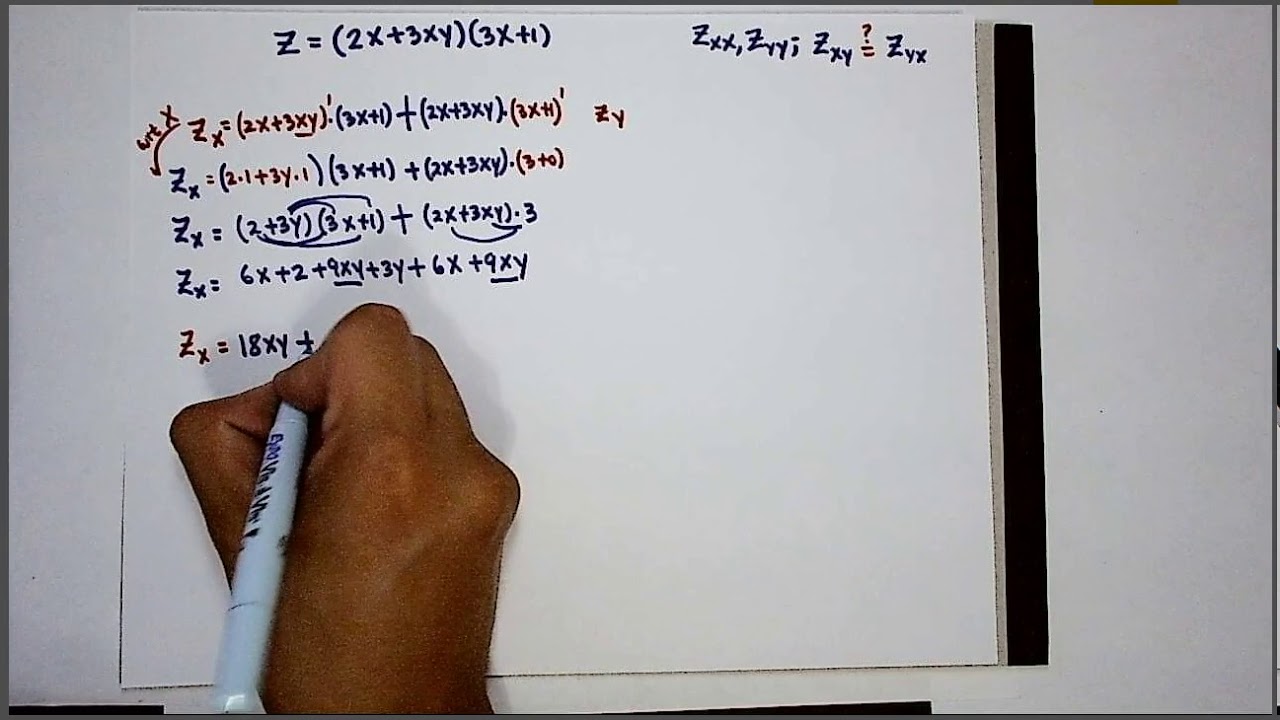 Z = (2x+3xy)(3x+1)
Zxx, Zyy; Zxy ?= Zyx
wrt x
Zx = (2x+3xy)'·(3x+1)+(2x+3xy)·(3x+1)' Zy
Zx = (2·1+3y·1)(3x+1)+(2x+3xy)·(3+0)
Zx = (2+3y)(3x+1)+(2x+3xy)·3
Zx = 6x+2+9xy+3y+6x+9xy
Zx = 18xy +